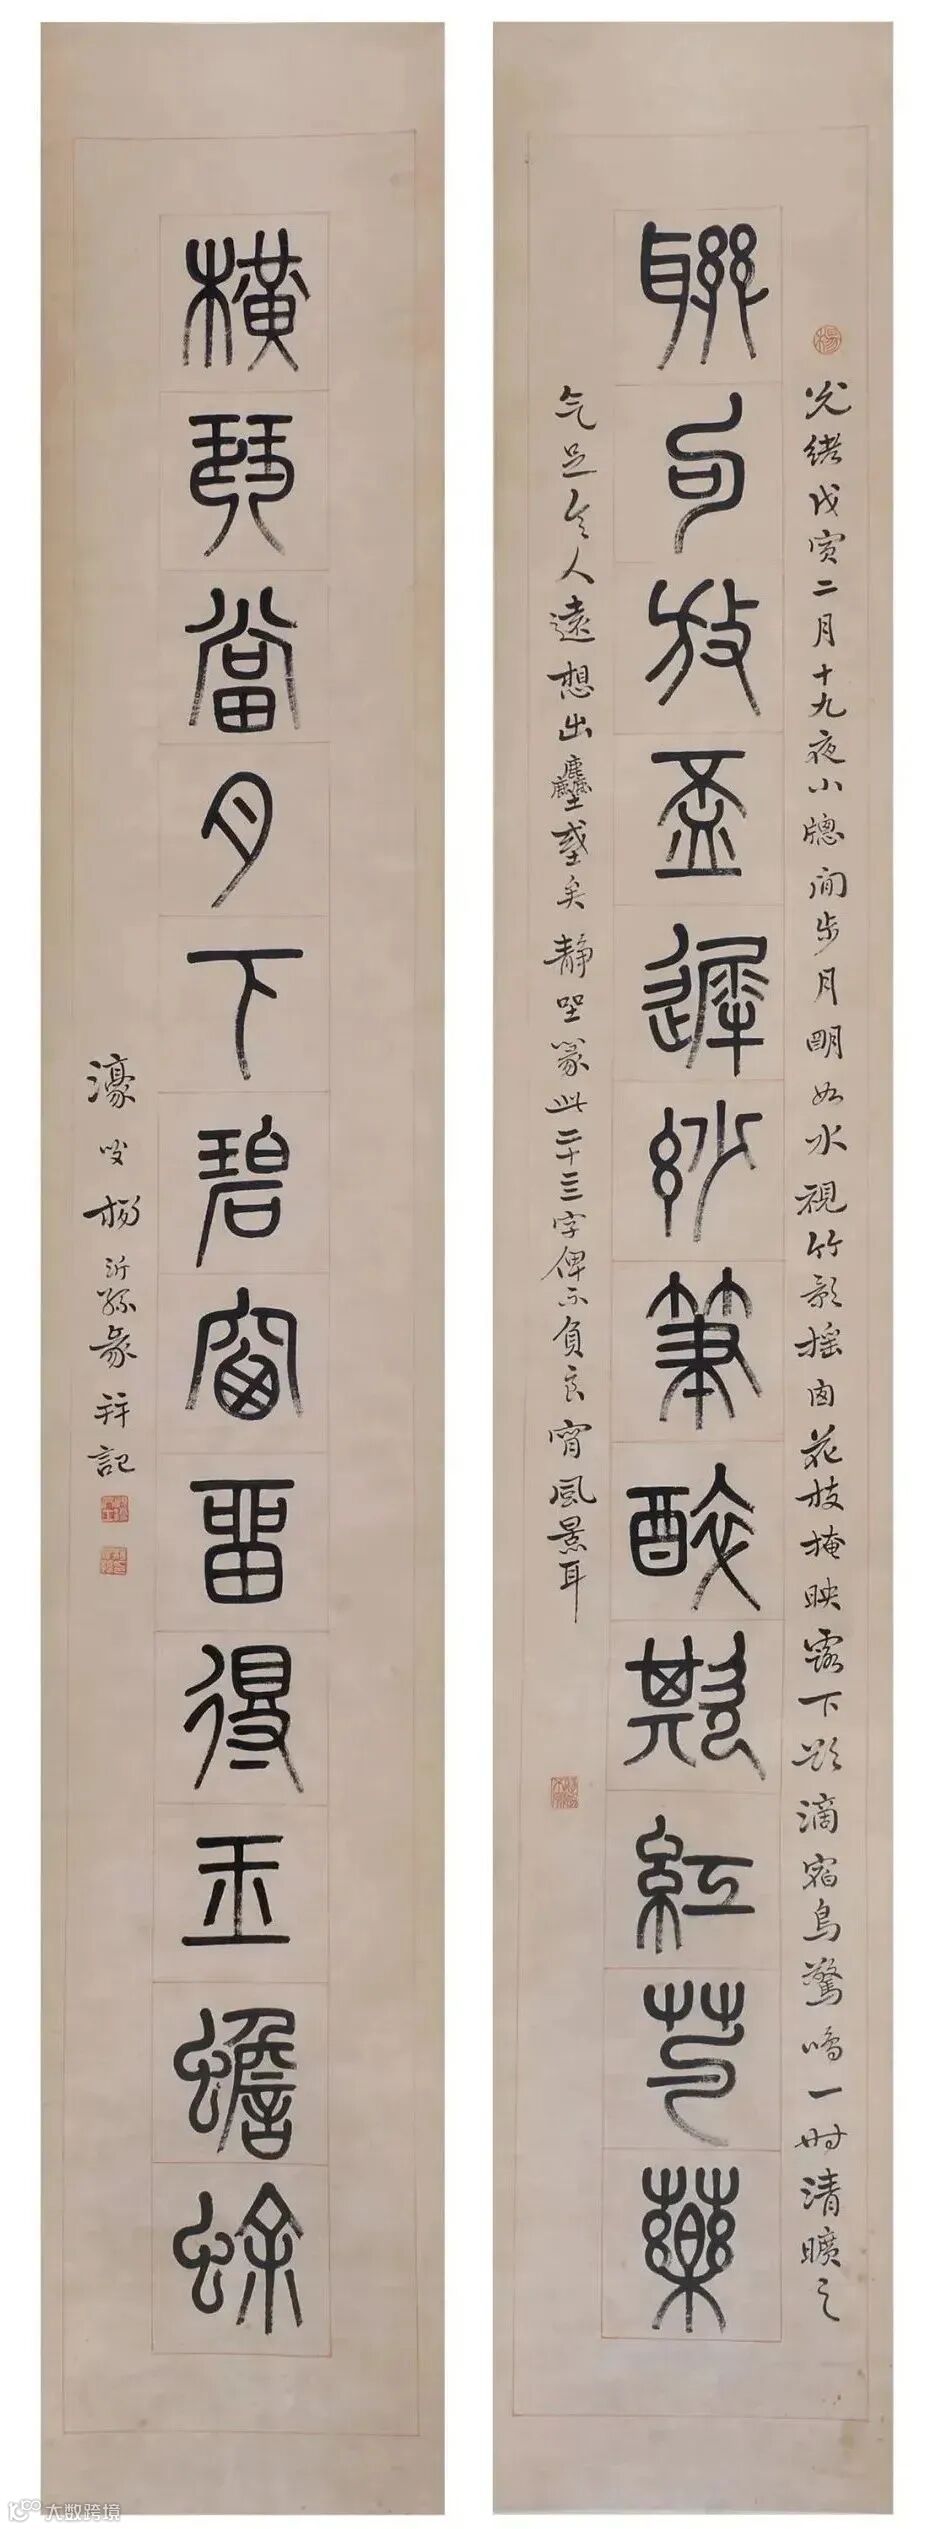 楊
光緒戊寅二月十九夜小牕閒步月朙如水視竹影搖囱花枝掩映露下欲滴宿鳥驚鳴一時清曠之
聯句放盃遲玅筆醉欺紅芍藥
气足令人遠想出塵矣靜坐篆此二十三字俾不負良宵風景耳
橫琴當月下碧窗畱得玉蟾蜍
濠叟楊沂孫篆并記
大数跨境